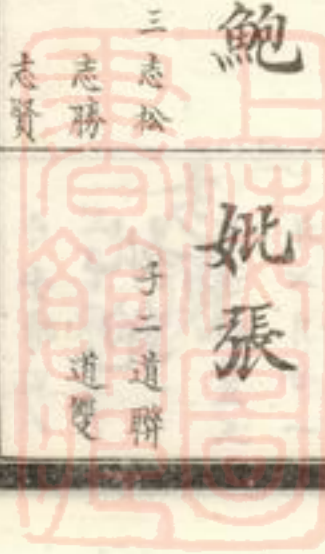 鮑
三志松
志勝
志賢
妣張
子二道聯
道雙